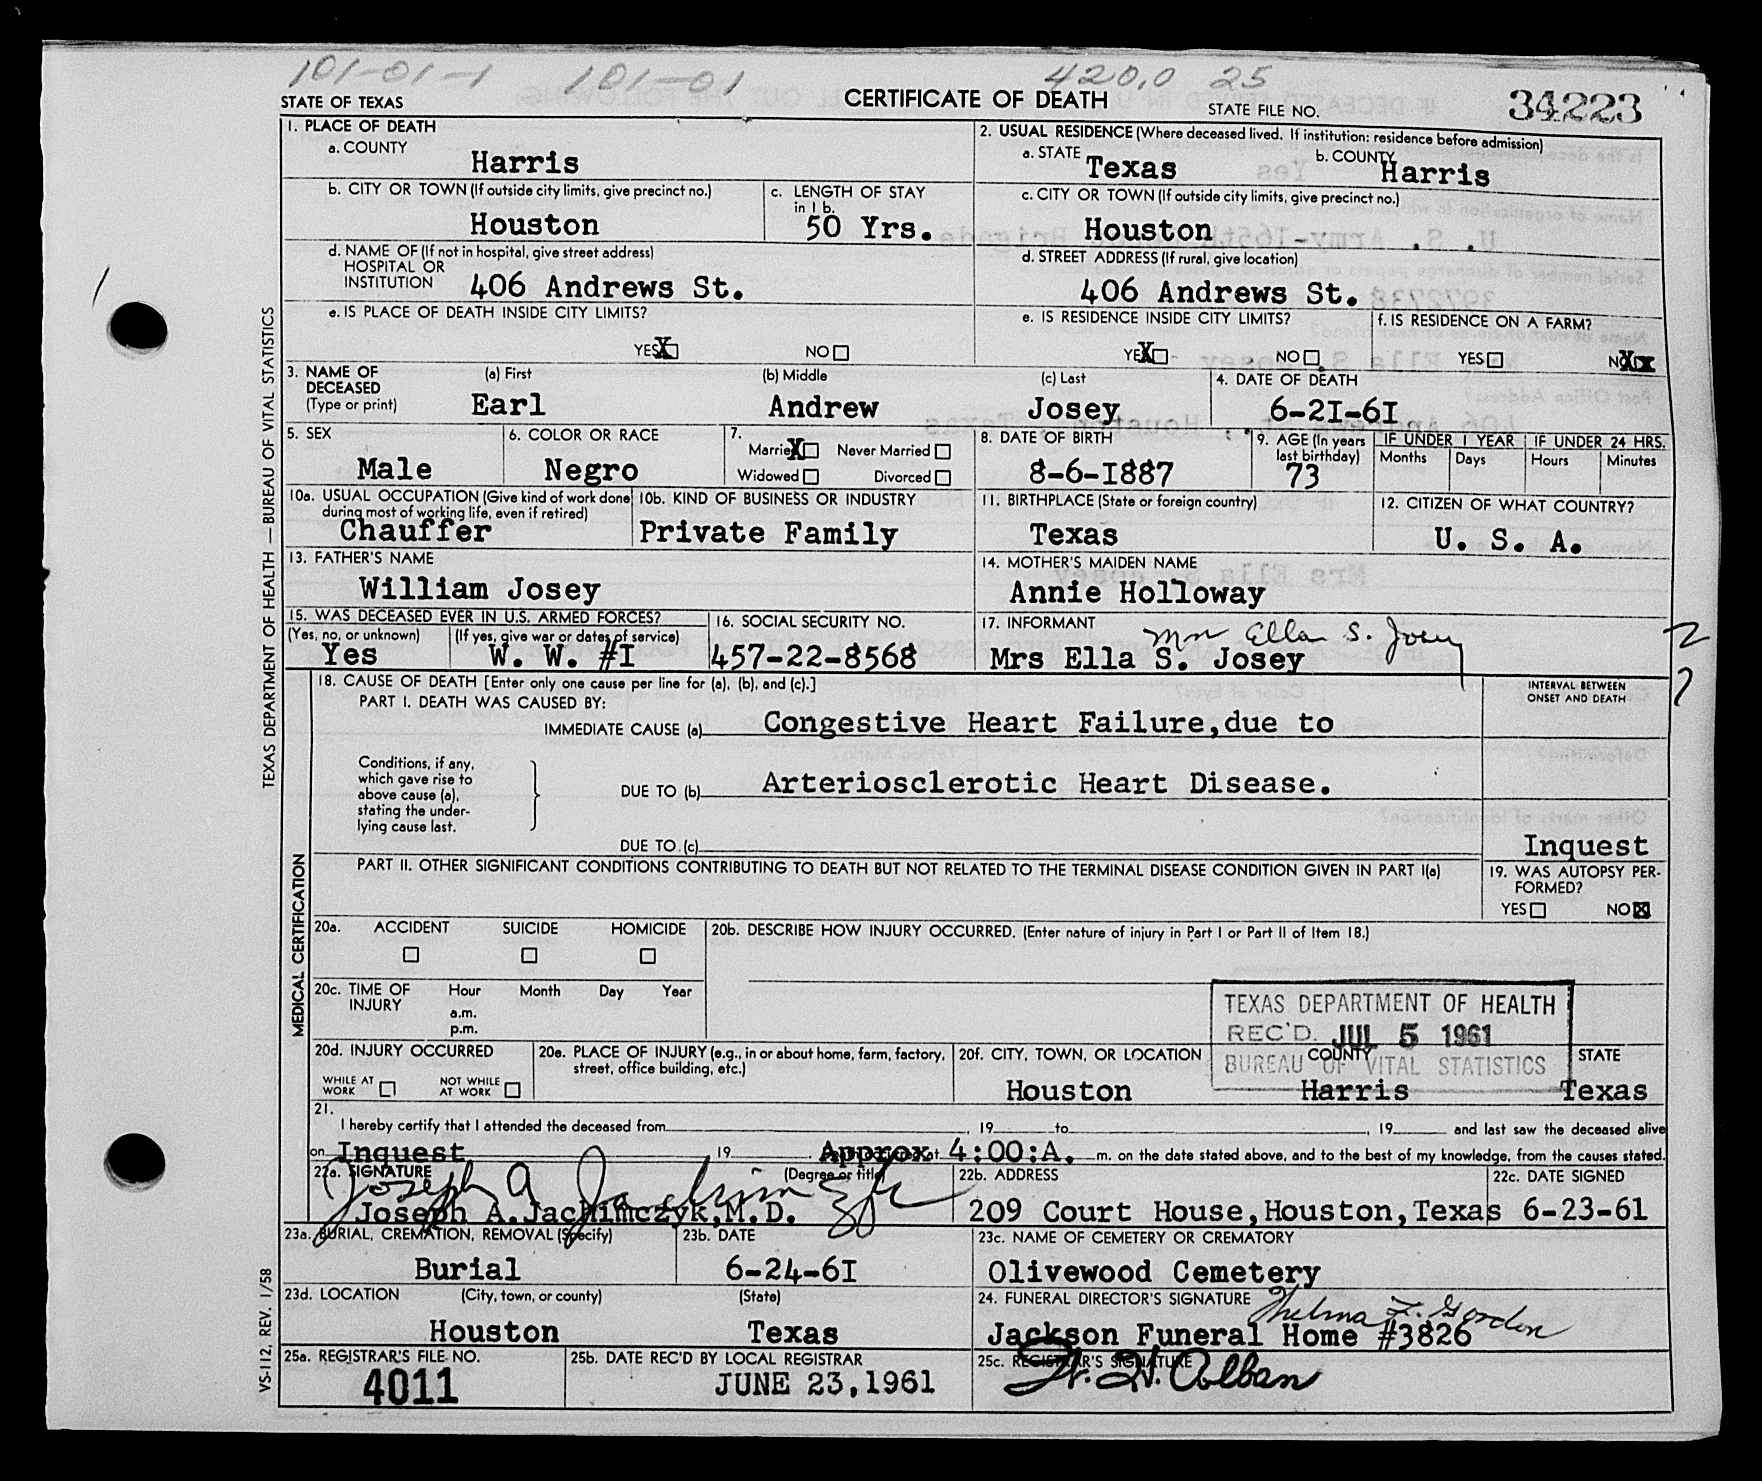 101-01-1 101-01 420.0 25
STATE OF TEXAS CERTIFICATE OF DEATH STATE FILE NO. 34223
1. PLACE OF DEATH
a. COUNTY
Harris
2. USUAL RESIDENCE (Where deceased lived. If institution: residence before admission)
a. STATE Texas b. COUNTY Harris
b. CITY OR TOWN (If outside city limits, give precinct no.)
Houston
c. LENGTH OF STAY
in 1 b.
50 Yrs.
c. CITY OR TOWN (If outside city limits, give precinct no.)
Houston
d. NAME OF (If not in hospital, give street address)
HOSPITAL OR
INSTITUTION 406 Andrews St.
d. STREET ADDRESS (If rural, give location)
406 Andrews St.
e. IS PLACE OF DEATH INSIDE CITY LIMITS?
YES X NO
e. IS RESIDENCE INSIDE CITY LIMITS?
YES X NO
f. IS RESIDENCE ON A FARM?
YES NO X
3. NAME OF
DECEASED
(Type or print)
(a) First (b) Middle (c) Last
Earl Andrew Josey
4. DATE OF DEATH
6-2I-6I
5. SEX
Male
6. COLOR OR RACE
Negro
7.
Married X Never Married
Widowed Divorced
8. DATE OF BIRTH
8-6-I887
9. AGE (In years
last birthday)
73
IF UNDER 1 YEAR IF UNDER 24 HRS.
Months Days Hours Minutes
10a. USUAL OCCUPATION (Give kind of work done
during most of working life, even if retired)
Chauffer
10b. KIND OF BUSINESS OR INDUSTRY
Private Family
11. BIRTHPLACE (State or foreign country)
Texas
12. CITIZEN OF WHAT COUNTRY?
U. S. A.
13. FATHER'S NAME
William Josey
14. MOTHER'S MAIDEN NAME
Annie Holloway
15. WAS DECEASED EVER IN U.S. ARMED FORCES?
(Yes, no, or unknown) (If yes, give war or dates of service)
Yes W. W. #I
16. SOCIAL SECURITY NO.
457-22-8568
17. INFORMANT Mrs Ella S. Josey
Mrs Ella S. Josey
2
7
18. CAUSE OF DEATH [Enter only one cause per line for (a), (b), and (c).]
PART I. DEATH WAS CAUSED BY:
INTERVAL BETWEEN
ONSET AND DEATH
IMMEDIATE CAUSE (a) Congestive Heart Failure,due to
Conditions, if any,
which gave rise to
above cause (a),
stating the under-
lying cause last.
DUE TO (b) Arteriosclerotic Heart Disease.
DUE TO (c)
Inquest
PART II. OTHER SIGNIFICANT CONDITIONS CONTRIBUTING TO DEATH BUT NOT RELATED TO THE TERMINAL DISEASE CONDITION GIVEN IN PART I(a)
19. WAS AUTOPSY PER-
FORMED?
YES NO X
20a. ACCIDENT SUICIDE HOMICIDE
20b. DESCRIBE HOW INJURY OCCURRED. (Enter nature of injury in Part I or Part II of Item 18.)
20c. TIME OF
INJURY
Hour Month Day Year
a.m.
p.m.
TEXAS DEPARTMENT OF HEALTH
REC'D. JUL 5 1961
BUREAU OF VITAL STATISTICS
20d. INJURY OCCURRED
WHILE AT
WORK
NOT WHILE
AT WORK
20e. PLACE OF INJURY (e.g., in or about home, farm, factory,
street, office building, etc.)
20f. CITY, TOWN, OR LOCATION COUNTY STATE
Houston Harris Texas
21.
I hereby certify that I attended the deceased from , 19 to , 19 and last saw the deceased alive
on Inquest 19 . Approx 4:00:A. m. on the date stated above, and to the best of my knowledge, from the causes stated.
22a. SIGNATURE (Degree or title)
Joseph A Jachimczyk
Joseph A.Jachimczyk,M.D.
22b. ADDRESS
209 Court House,Houston,Texas
22c. DATE SIGNED
6-23-61
23a. BURIAL, CREMATION, REMOVAL (Specify)
Burial
23b. DATE
6-24-6I
23c. NAME OF CEMETERY OR CREMATORY
Olivewood Cemetery
23d. LOCATION (City, town, or county) (State)
Houston Texas
24. FUNERAL DIRECTOR'S SIGNATURE Thelma F. Gordon
Jackson Funeral Home #3826
25a. REGISTRAR'S FILE NO.
4011
25b. DATE REC'D BY LOCAL REGISTRAR
JUNE 23,1961
25c. REGISTRAR'S SIGNATURE
TEXAS DEPARTMENT OF HEALTH — BUREAU OF VITAL STATISTICS
MEDICAL CERTIFICATION
VS-112, REV. 1/58